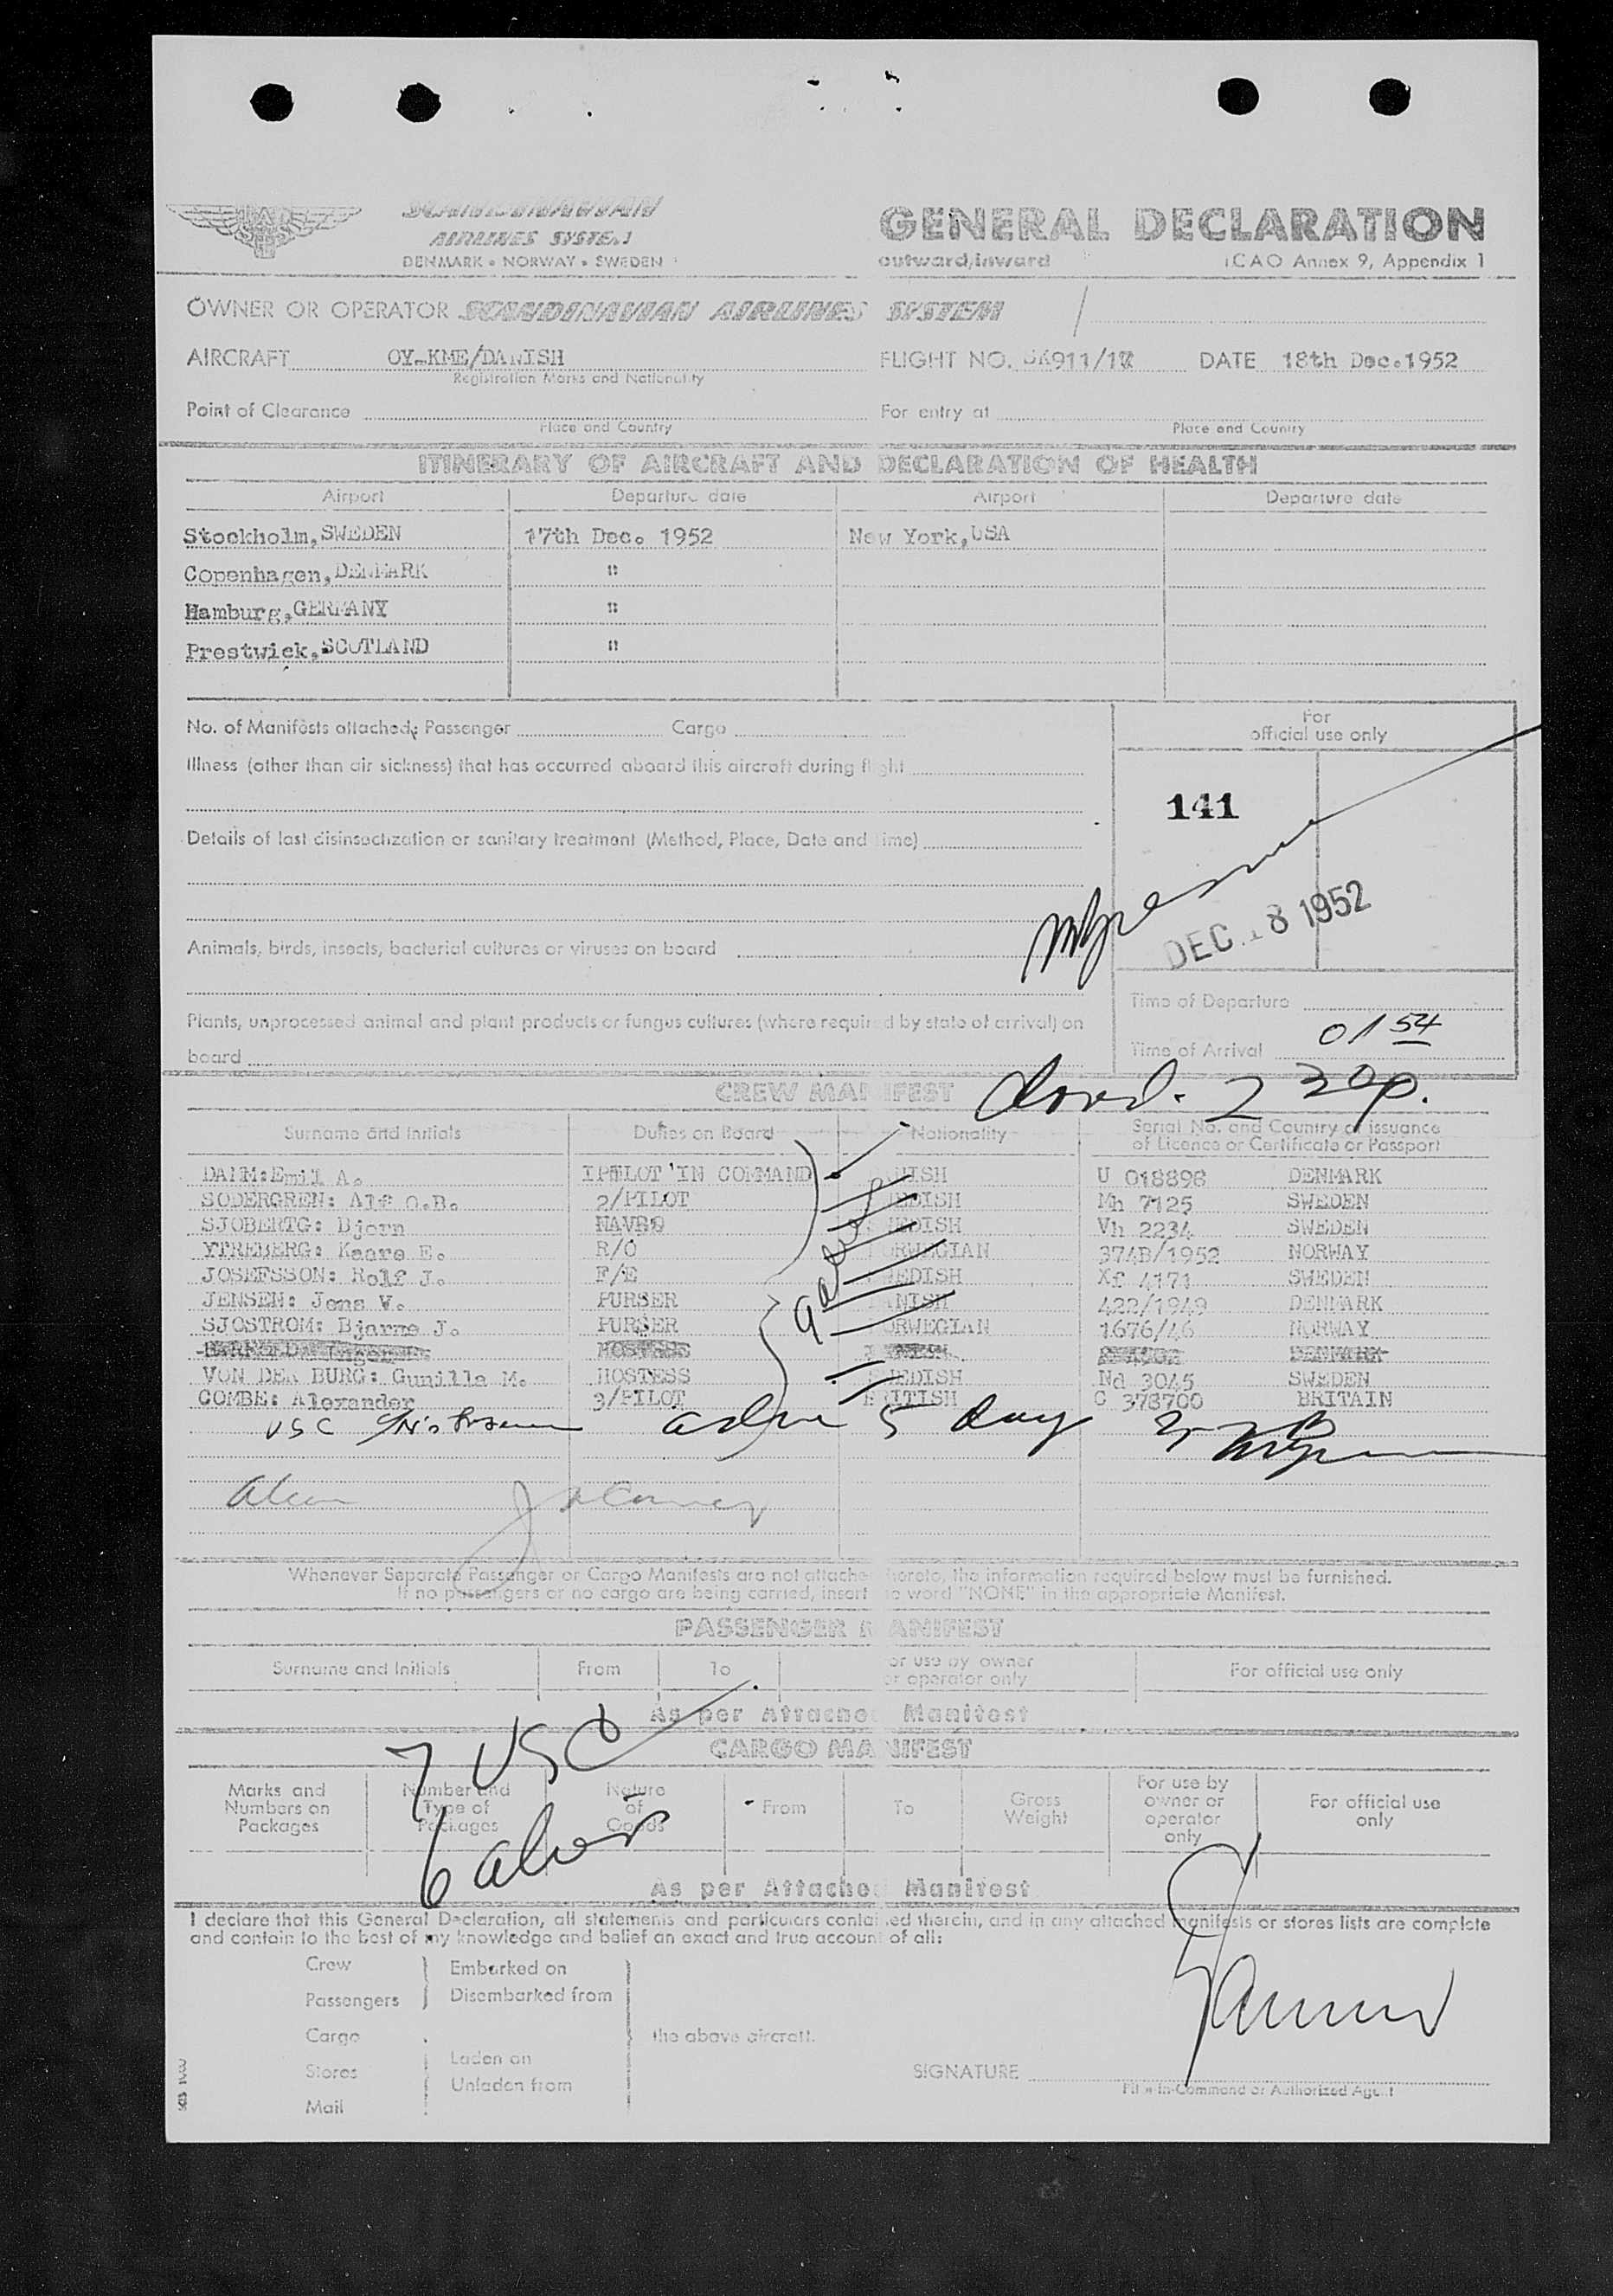 SCANDINAVIAN
AIRLINES SYSTEM
DENMARK • NORWAY • SWEDEN
GENERAL DECLARATION
outward/inward
ICAO Annex 9, Appendix 1
OWNER OR OPERATOR SCANDINAVIAN AIRLINES SYSTEM
AIRCRAFT OY-KME/DANISH FLIGHT NO. SK911/17 DATE 18th Dec.1952
Registration Marks and Nationality
Point of Clearance For entry at
Place and Country Place and Country
ITINERARY OF AIRCRAFT AND DECLARATION OF HEALTH
Airport Departure date Airport Departure date
Stockholm, SWEDEN 17th Dec. 1952 New York, USA
Copenhagen, DENMARK "
Hamburg, GERMANY "
Prestwick, SCOTLAND "
No. of Manifests attached: Passenger Cargo
For
official use only
Illness (other than air sickness) that has occurred aboard this aircraft during flight
141
Details of last disinsectization or sanitary treatment (Method, Place, Date and Time)
DEC. 18 1952
Animals, birds, insects, bacterial cultures or viruses on board
Time of Departure
Plants, unprocessed animal and plant products or fungus cultures (where required by state of arrival) on
board
Time of Arrival 01 54
CREW MANIFEST
230p.
Surname and Initials Duties on Board Nationality Serial No. and Country of issuance
of Licence or Certificate or Passport
DAMM: Emil A. 1PILOT IN COMMAND DANISH U 018898 DENMARK
SODERGREN: Alf O.B. 2/PILOT SWEDISH Mh 7125 SWEDEN
SJOBERTG: Bjorn NAV SWEDISH Vh 2234 SWEDEN
YTREBERG: Kaare E. R/O NORWEGIAN 374B/1952 NORWAY
JOSEFSSON: Rolf J. F/E SWEDISH Xf 4171 SWEDEN
JENSEN: Jens V. PURSER DANISH 422/1949 DENMARK
SJOSTROM: Bjarne J. PURSER NORWEGIAN 1676/46 NORWAY
HOSTESS DENMARK
VON DER BURG: Gunilla M. HOSTESS SWEDISH Nd 3045 SWEDEN
COMBE: Alexander 3/PILOT BRITISH C 378700 BRITAIN
USC
Whenever Separate Passenger or Cargo Manifests are not attached hereto, the information required below must be furnished.
If no passengers or no cargo are being carried, insert the word "NONE" in the appropriate Manifest.
PASSENGER MANIFEST
Surname and Initials From To For use by owner
or operator only
For official use only
As per Attached Manifest
7 USC
CARGO MANIFEST
Marks and
Numbers on
Packages
Number and
Type of
Packages
Nature
of
Goods
From To Gross
Weight
For use by
owner or
operator
only
For official use
only
6 alien
As per Attached Manifest
I declare that this General Declaration, all statements and particulars contained therein, and in any attached manifests or stores lists are complete
and contain to the best of my knowledge and belief an exact and true account of all:
Crew Embarked on
Passengers Disembarked from
Cargo the above aircraft.
Stores Laden on
Unladen from
Mail
SIGNATURE
Pilot-in-Command or Authorized Agent